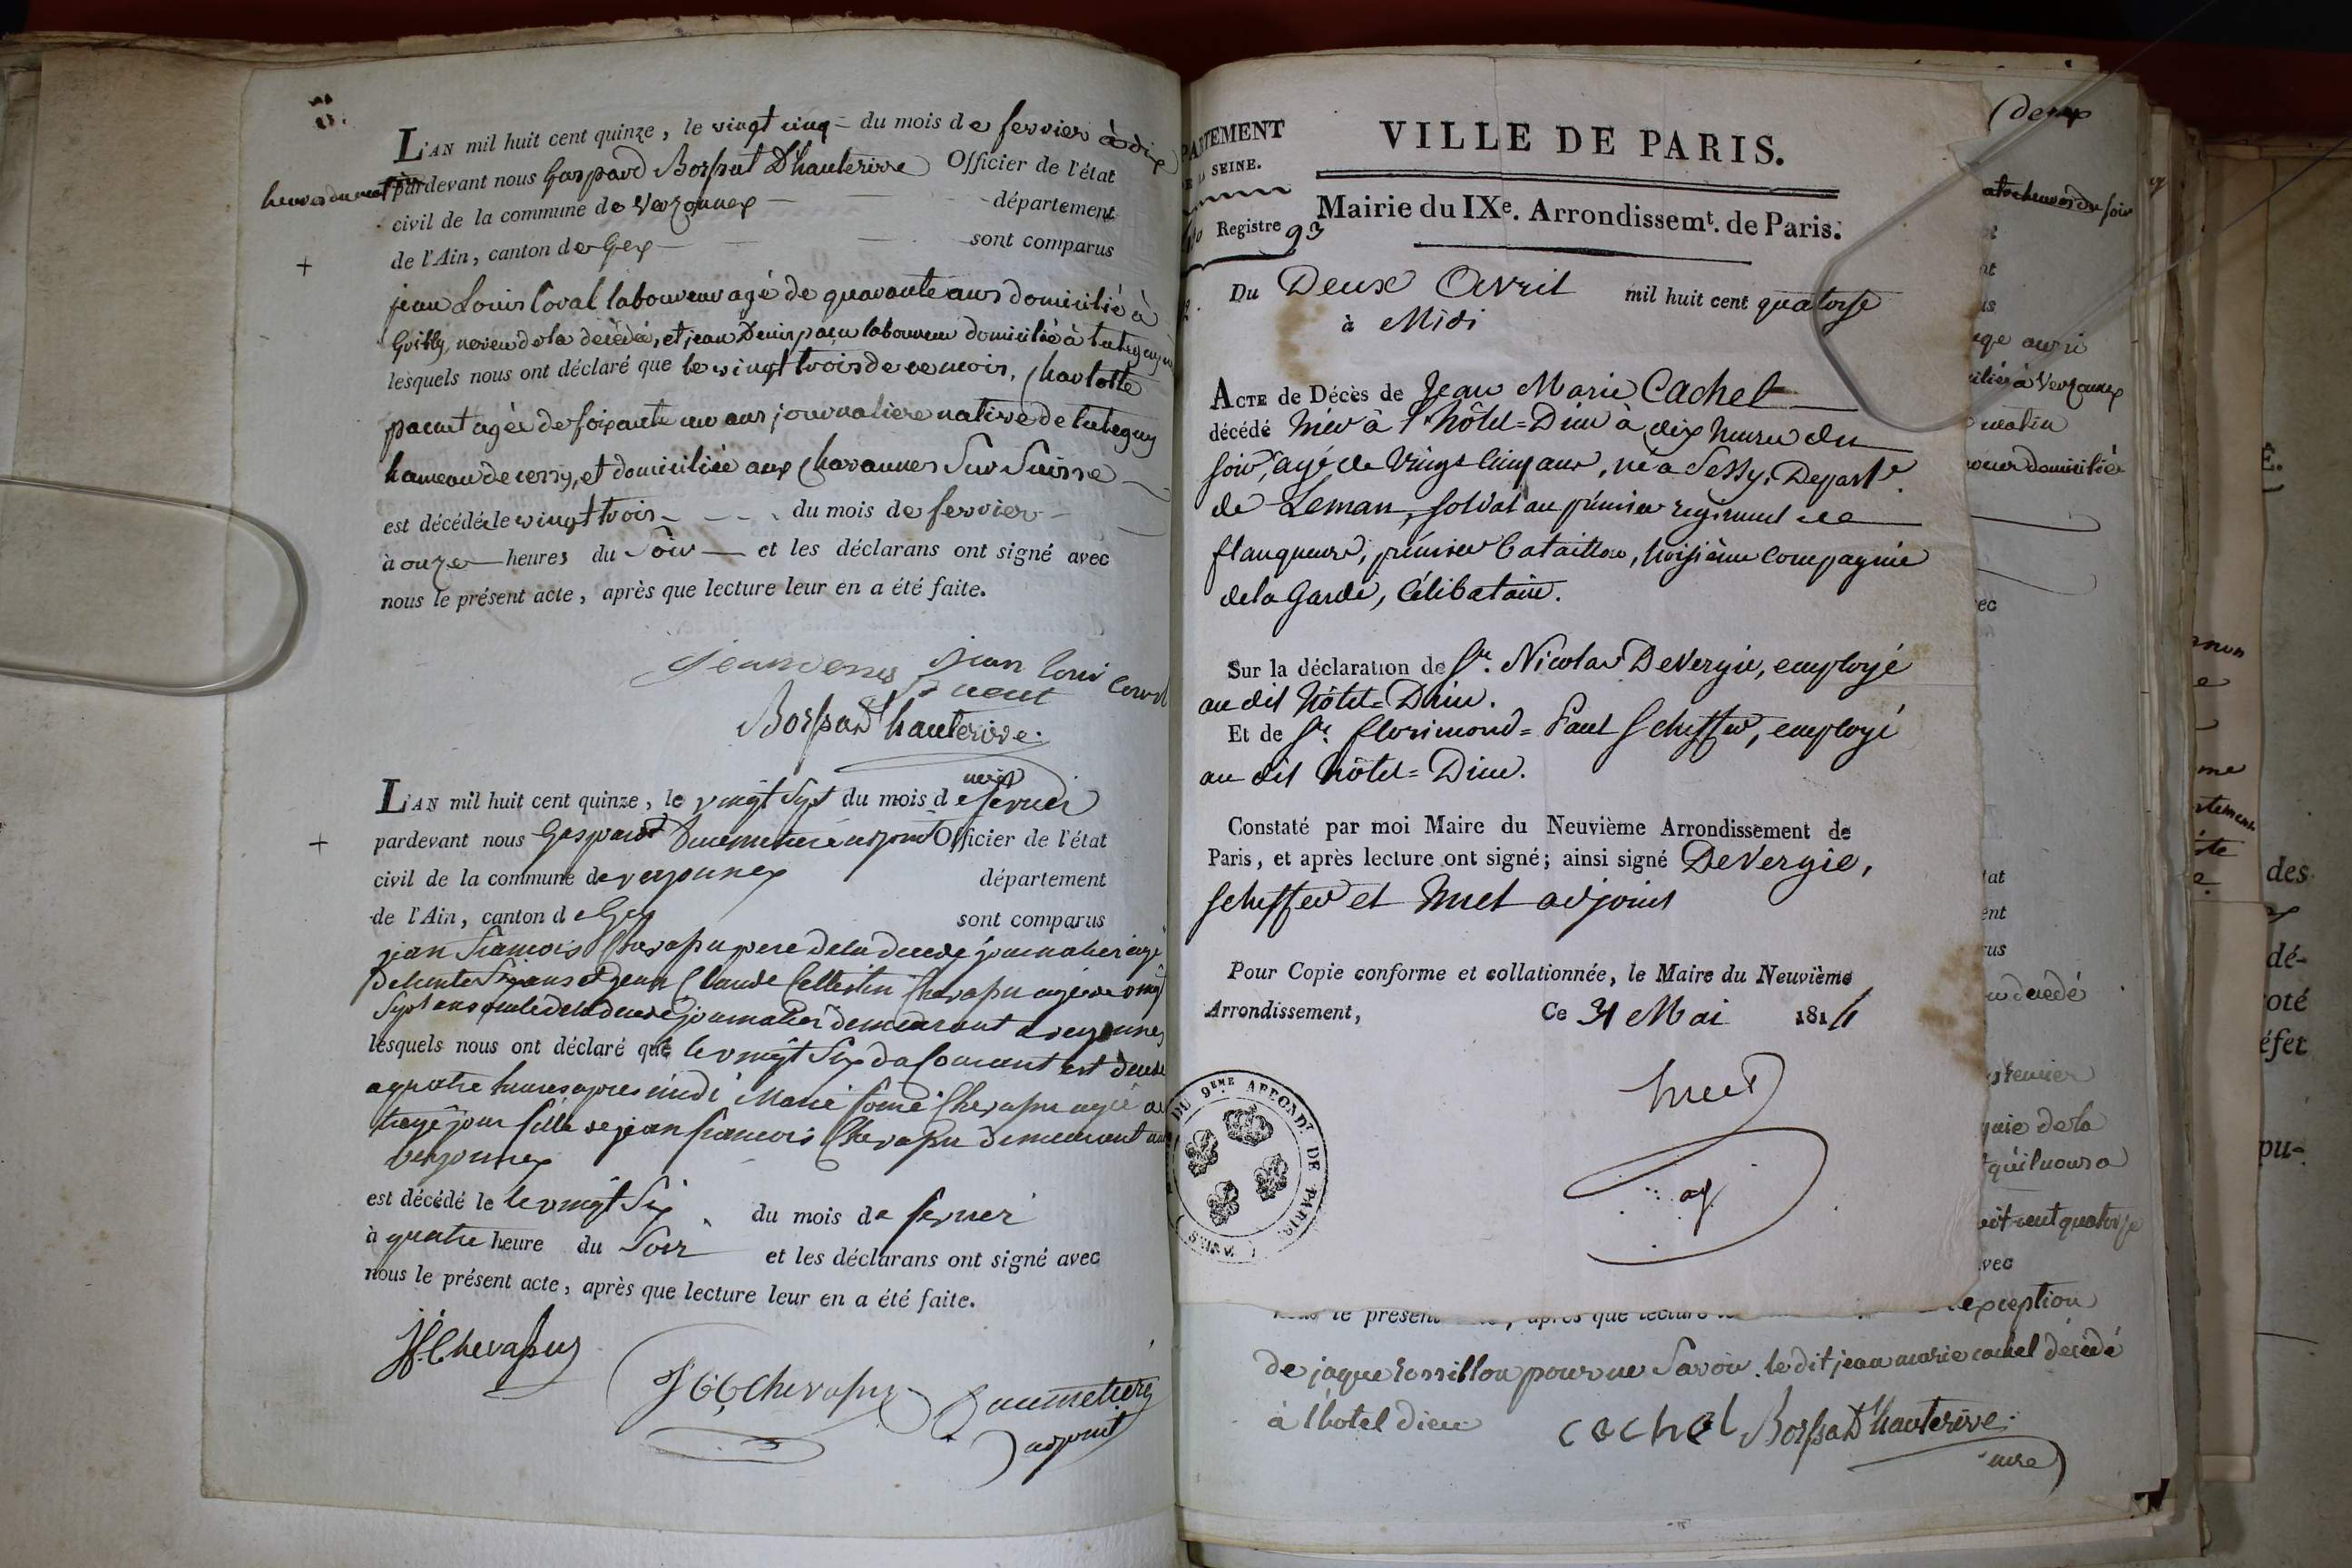 L'AN mil huit cent quinze, le vingt cinq du mois de fevrier à dix
heures du matin pardevant nous Gaspard Bossut D'hauterive Officier de l'état
civil de la commune de Verzonnex département
de l'Ain, canton de Gex sont comparus
jean Louis Coval laboureur agé de quarante ans domicilié à
neveu de la decédée, et jean Denis laboureur domicilié à
lesquels nous ont déclaré que le vingt trois de ce mois, Charlotte
agée de soixante un ans journaliere native de
hameau de cessy, et domiciliée aux Chavannes Sur Suisse
est décédée le vingt trois du mois de fevrier
à onze heures du Soir et les déclarans ont signé avec
nous le présent acte, après que lecture leur en a été faite.
jean denis jean loui
D'hauterive
L'AN mil huit cent quinze, le vingt Sept du mois de fevrier
pardevant nous Gaspard Ducimetière adjoint Officier de l'état
civil de la commune de verzonnex département
de l'Ain, canton de Gex sont comparus
jean francois Chevassu pere de la decede journalier agé
de trente Six ans et jean Claude Cellestin Chevassu agé de vingt
Sept ans oncle de la decedé journalier demeurant a verzonnex
lesquels nous ont déclaré que le vingt Six du Courant est decede
a quatre heures apres midi Marie Chevassu agée de
jour fille de jean francois Chevassu demeurant
verzonnex
est décédé le le vingt Six du mois de fevrier
à quatre heure du Soir et les déclarans ont signé avec
nous le présent acte, après que lecture leur en a été faite.
JF. Chevassus
J C C Chevassus Ducimetière
adjoint
VILLE DE PARIS.
SEINE.
Registre 93
Mairie du IXe. Arrondissemt. de Paris.
Du Deux Avril mil huit cent quatorze
à Midi
ACTE de Décès de Jean Marie Cachet
décédé hier à l'hôtel=Dieu à dix heures du
soir, agé de Vingt Cinq ans, né à Sessy, Departt.
de Leman, soldat au premier regiment de
flanqueurs, premier Bataillon, troisième Compagnie
de la Garde, Célibataire.
Sur la déclaration de Sr. Nicolas Devergie, employé
au dit hôtel=Dieu.
Et de Sr. florimond=Paul Scheffer, employé
au dit hôtel=Dieu.
Constaté par moi Maire du Neuvième Arrondissement de
Paris, et après lecture ont signé; ainsi signé Devergie,
Scheffer et huet adjoint
Pour Copie conforme et collationnée, le Maire du Neuvième
Arrondissement, Ce 31 Mai 1814
huet
adj
DU 9EME ARRONDT DE PARIS
exception
de jaque rossillon pour ne Savoir. le dit jean marie cachet décédé
à l'hotel dieu cachet D'hauterive